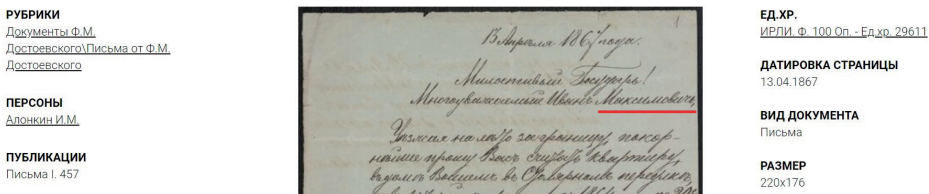 РУБРИКИ
Документы Ф.М.
Достоевского\Письма от Ф.М.
Достоевского
ПЕРСОНЫ
Алонкин И.М.
ПУБЛИКАЦИИ
Письма I. 457
1
13 Апреля 1867 года.
Милостивый Государь!
Многоуважаемый Иванъ Максимовичъ,
Уѣзжая на лѣто заграницу, покор-
нѣйше прошу Васъ считать квартиру,
въ домѣ Вашемъ въ Столярномъ переулкѣ,
ЕД.ХР.
ИРЛИ. Ф. 100 Оп. - Ед.хр. 29611
ДАТИРОВКА СТРАНИЦЫ
13.04.1867
ВИД ДОКУМЕНТА
Письма
РАЗМЕР
220x176